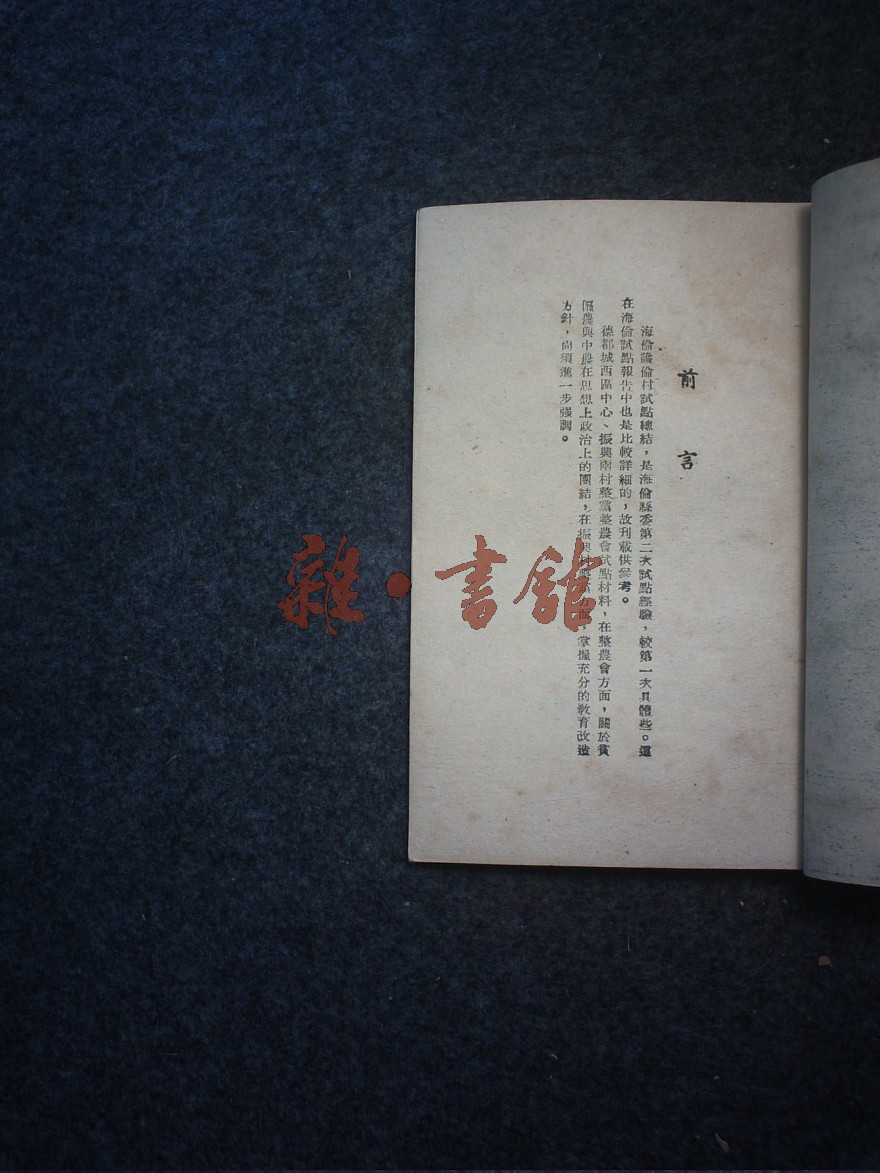 前言
海倫護倫村試點總結，是海倫縣委第二次試點經驗，較第一次具體些。還
在海倫試點報告中也是比較詳細的，故刊載供參考。
德都城西區中心、振興兩村整黨整農會試點材料，在整農會方面，關於貧
僱農與中農在思想上政治上的團結，在振興村整黨方面，掌握充分的教育改造
方針，尚須進一步強調。
雜·書館